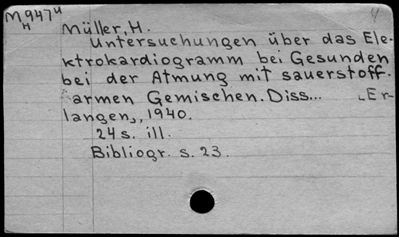 M9474
H
Müller, H.
Untersuchungen über das Ele-
ktrokardiogramm bei Gesunden
bei der Atmung mit sauerstoff-
armen Gemischen. Diss... [Er-
langen], 1940.
24 s. ill.
Bibliogr. s. 23.